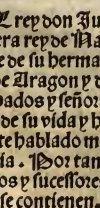 L rey don Ju
era rey de Na
e de su herma
de Aragon y d
bados y señor
de su vida y h
te hablado m
ia. Por tan
os y sucessore
se contienen.